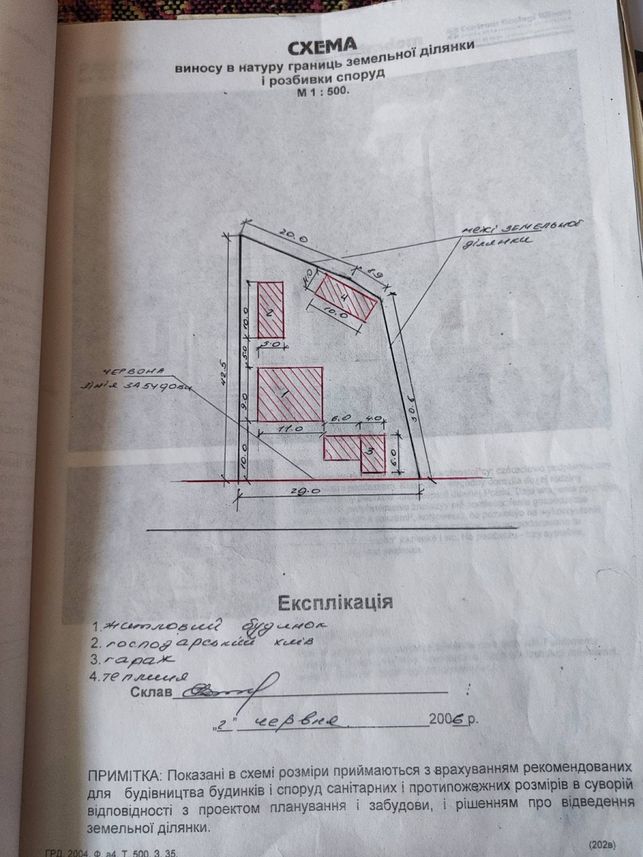 СХЕМА
виносу в натуру границь земельної ділянки
і розбивки споруд
М 1 : 500.
20.0
межі земельної
ділянки
6.9
4.0
4
10.0
2
10.0
3.0
42.5
5.0
червона
лінія забудови
1
9.0
11.0
6.0
4.0
30.5
3
6.0
10.0
29.0
Експлікація
1. житловий будинок
2. господарський хлів
3. гараж
4. теплиця
Склав
„2" червня 2006 р.
ПРИМІТКА: Показані в схемі розміри приймаються з врахуванням рекомендованих
для будівництва будинків і споруд санітарних і протипожежних розмірів в суворій
відповідності з проектом планування і забудови, і рішенням про відведення
земельної ділянки.
(202в)
ГРД_2004_Ф_а4_Т_500_З_35